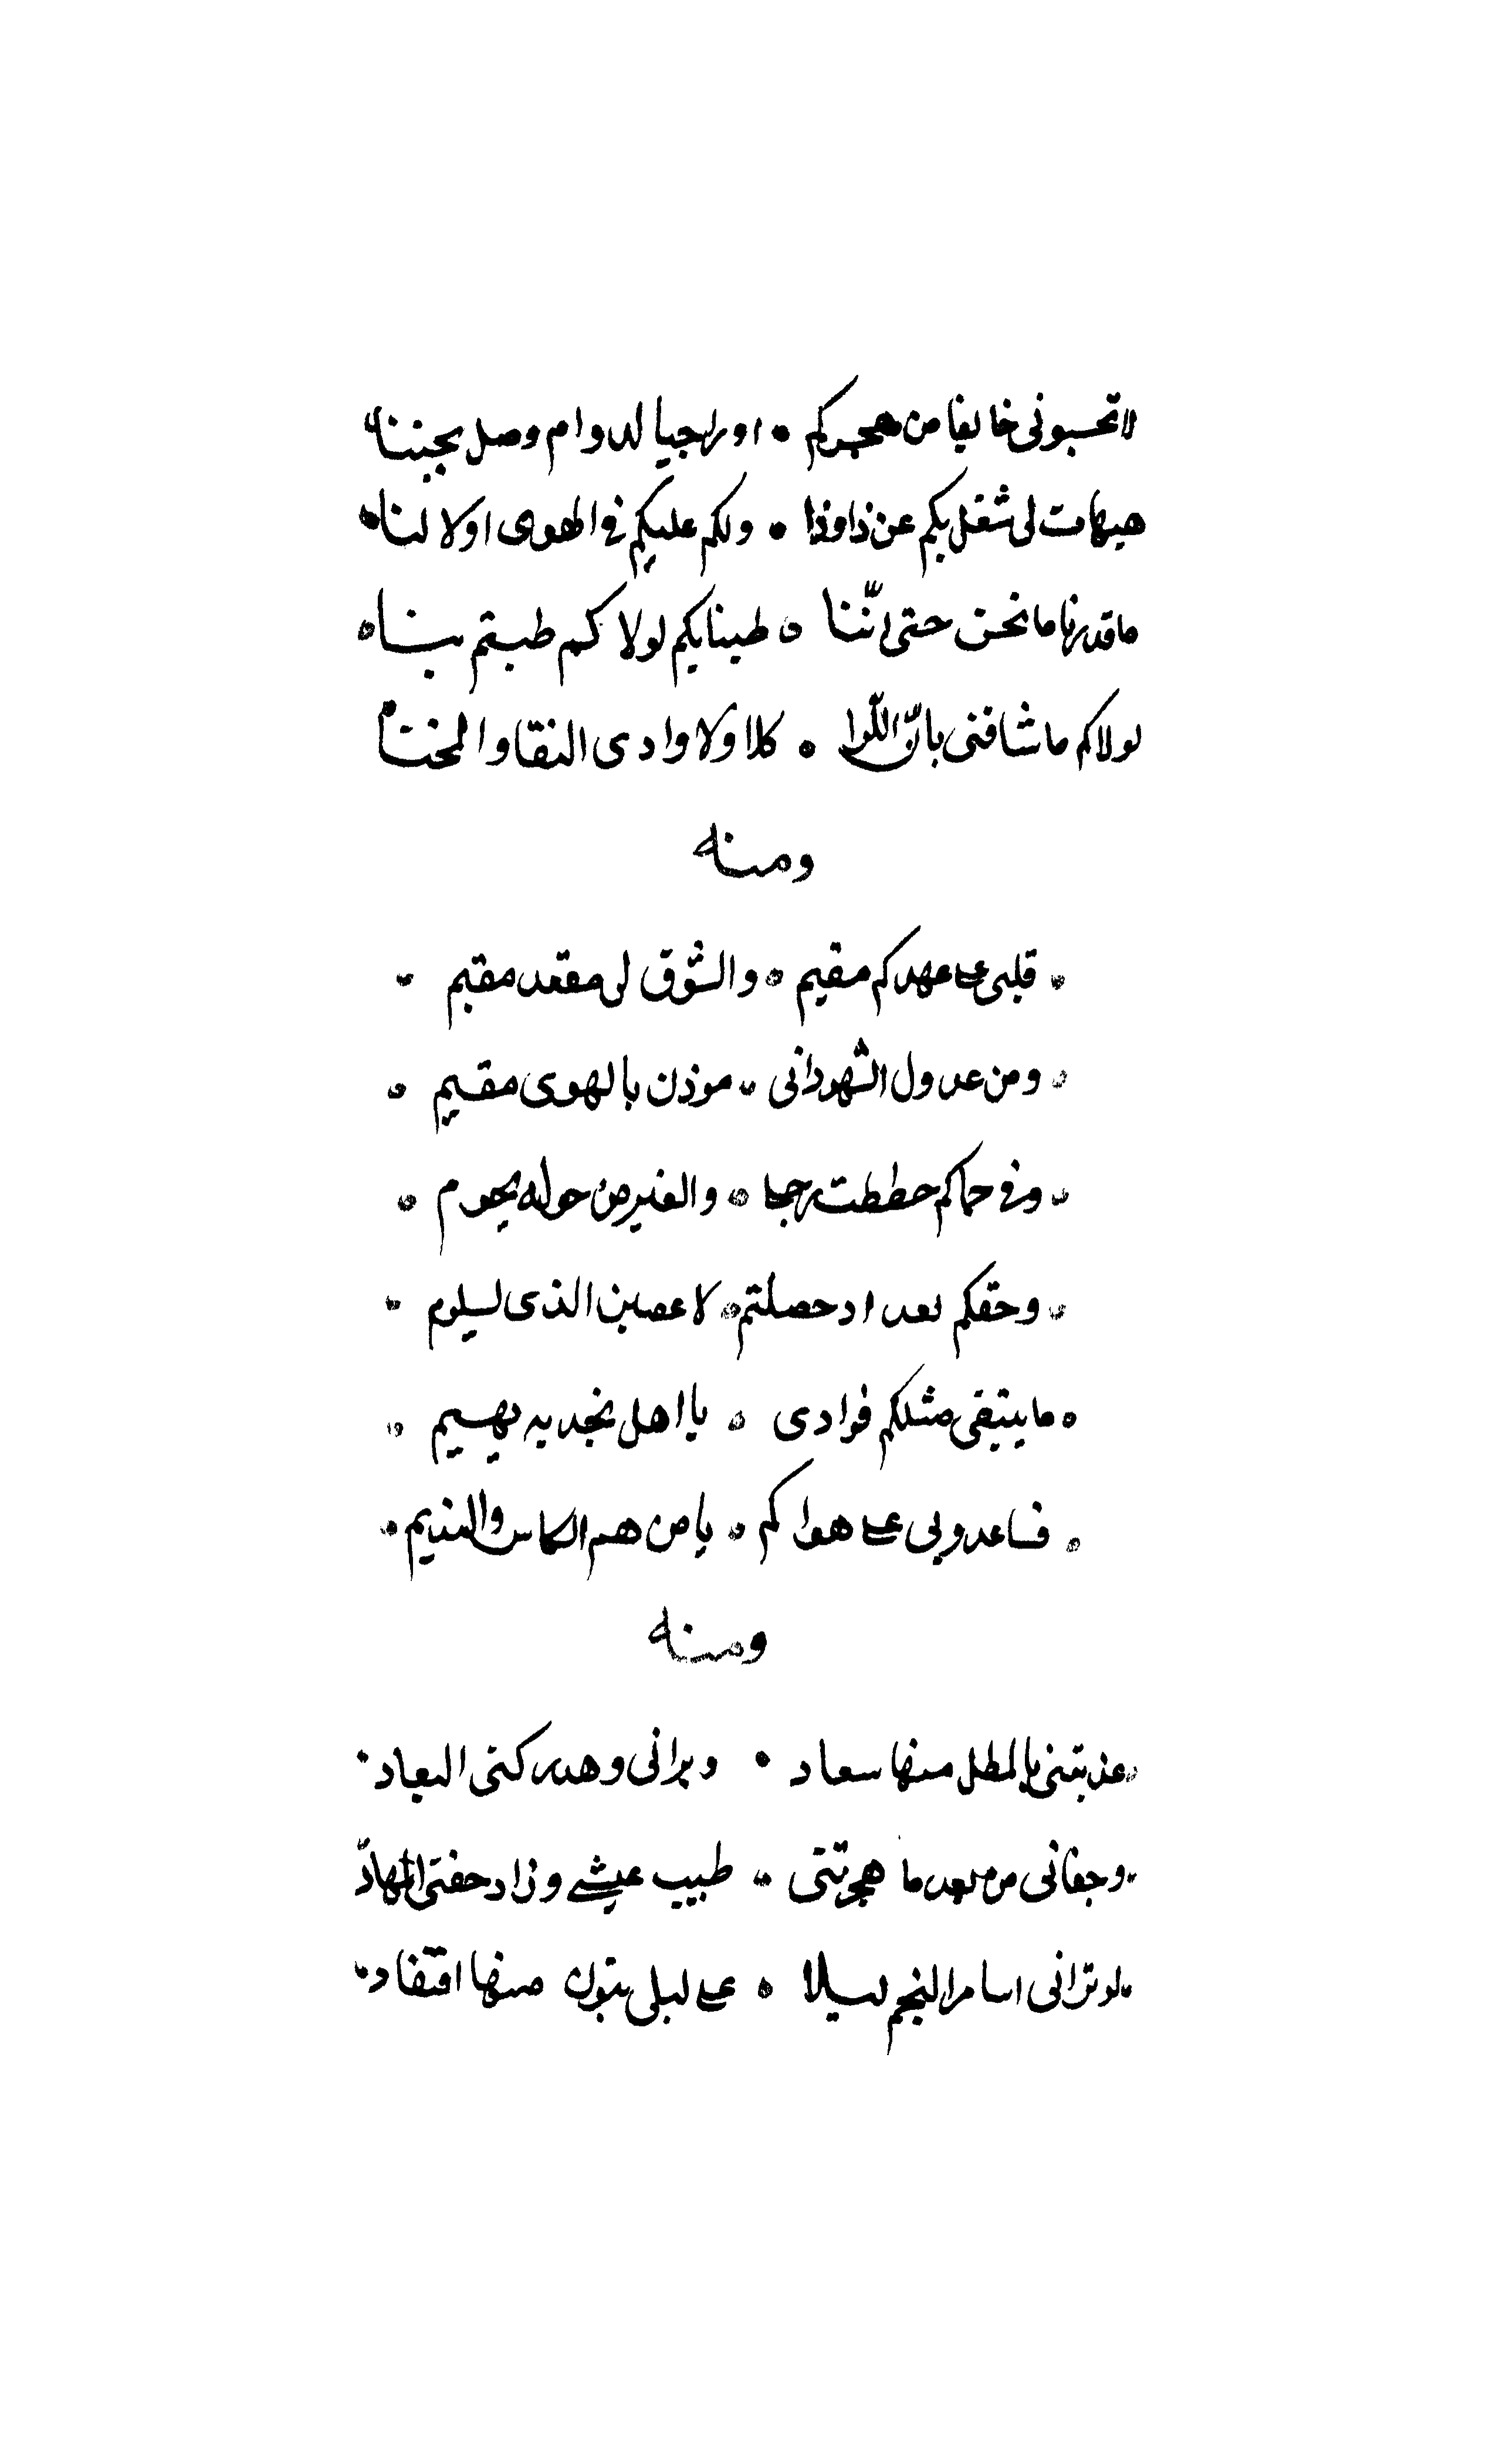 لا تحسبونى خايفا من هجركم • او راجيا لدوام وصل يجيننا
هيهات لى شغل بكم عن ذا وذا • ولكم عليكم فى الهوى اولا لنا
ما قدرنا ما نحن حتى اننا • طبنا بكم لولا كم طبتم بنا
لولاكم ما شاقنى بان اللوا • كلا ولا وادى النقا والمنحنا
ومنه
قلبى على عهدكم مقيم • والشوق لى مقعد مقيم
ومن عدول الشهود انى • موذن بالهوى مقيم
وفى حماكم حططت رحلى • والغير من حوله يحوم
وحقكم بعد اد حصلتم • لا عصين الذى يلوم
ما يبتغى مثلكم فوادى • يا اهل نجد به يهيم
فساعدونى على هواكم • يا من هم الكاس والنديم
ومنه
عذبتنى بالمطل منها سعاد • وبرانى وهد ركنى البعاد
وجفانى من بعد ما هجرتنى • طيب عيشى وزاد جفنى السهاد
لو ترانى اسامر النجم ليلا • على ليلى يكون منها افتقاد